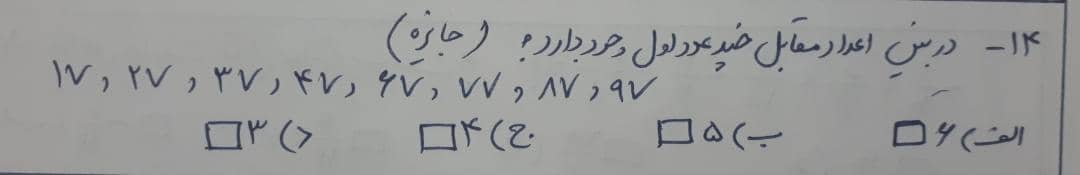 ۱۴- در بین اعداد مقابل چند عدد اول وجود دارد؟ (جایزه)
۱۷ , ۲۷ , ۳۷ , ۴۷ , ۶۷ , ۷۷ , ۸۷ , ۹۷
الف) ۶ □ ب) ۵ □ ج) ۴ □ د) ۳ □